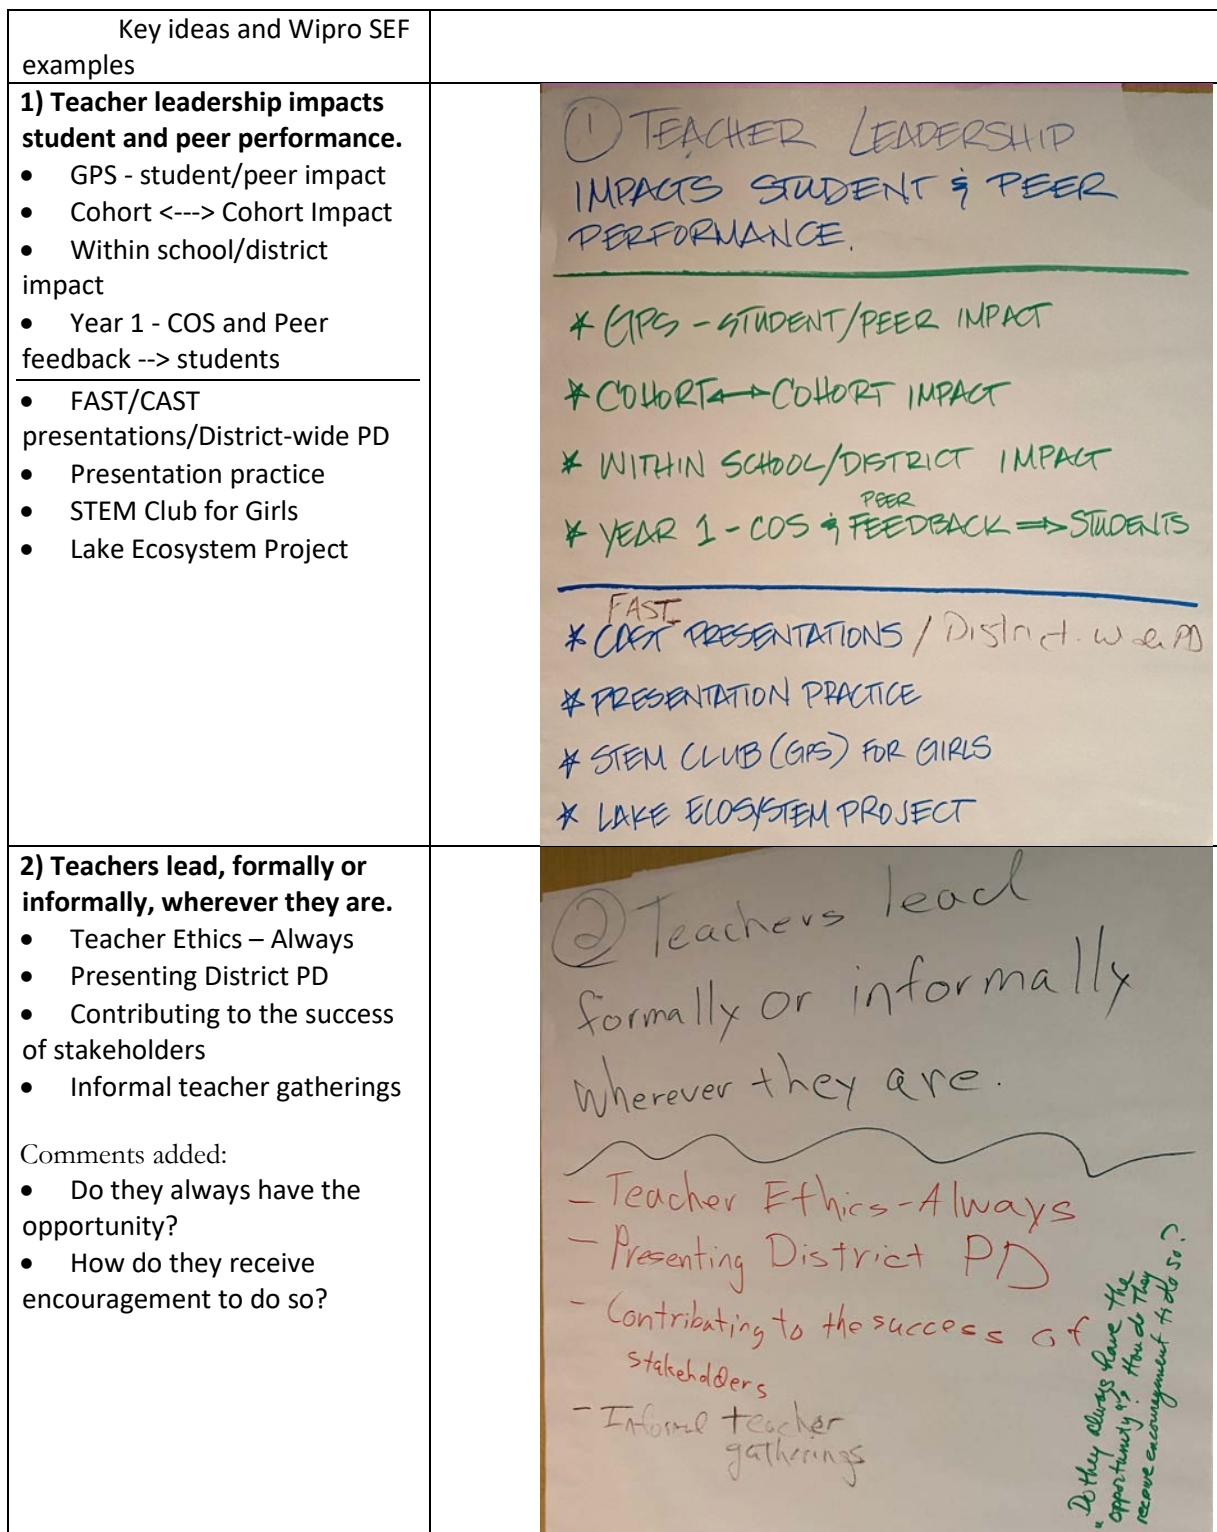 Key ideas and Wipro SEF
examples
1) Teacher leadership impacts
student and peer performance.
• GPS - student/peer impact
• Cohort <---> Cohort Impact
• Within school/district
impact
• Year 1 - COS and Peer
feedback --> students
• FAST/CAST
presentations/District-wide PD
• Presentation practice
• STEM Club for Girls
• Lake Ecosystem Project
① TEACHER LEADERSHIP
IMPACTS STUDENT & PEER
PERFORMANCE.
* GPS - STUDENT/PEER IMPACT
* COHORT <-> COHORT IMPACT
* WITHIN SCHOOL/DISTRICT IMPACT
PEER
* YEAR 1 - COS & FEEDBACK => STUDENTS
FAST
* CAST PRESENTATIONS / District-wide PD
* PRESENTATION PRACTICE
* STEM CLUB (GPS) FOR GIRLS
* LAKE ECOSYSTEM PROJECT
2) Teachers lead, formally or
informally, wherever they are.
• Teacher Ethics – Always
• Presenting District PD
• Contributing to the success
of stakeholders
• Informal teacher gatherings
Comments added:
• Do they always have the
opportunity?
• How do they receive
encouragement to do so?
② Teachers lead
formally or informally
wherever they are.
- Teacher Ethics - Always
- Presenting District PD
- Contributing to the success of
stakeholders
- Informal teacher
gatherings
"Do they always have the
opportunity"? How do they
receive encouragement to do so?